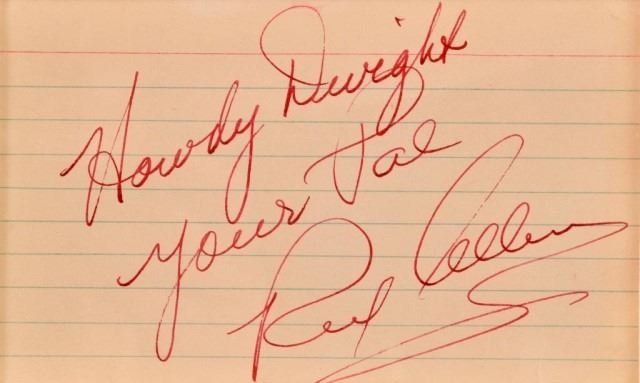 Howdy Dwight
Your Pal
Rex Allen